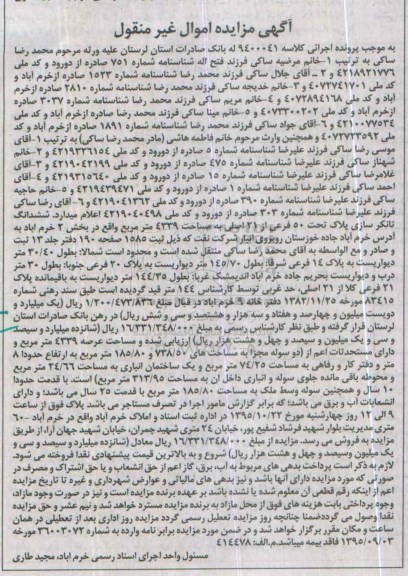 آگهی مزایده اموال غیر منقول
به موجب پرونده اجرائی کلاسه ۹۴۰۰۰۴۱ له بانک صادرات استان لرستان علیه ورثه مرحوم محمد رضا
ساکی به ترتیب ۱-خانم مرضیه ساکی فرزند فتح اله شناسنامه شماره ۷۵۱ صادره از دورود و کد ملی
۴۲۱۸۹۲۱۷۷۶ و ۲- آقای جلال ساکی فرزند محمد رضا شناسنامه شماره ۱۵۲۳ صادره ازخرم آباد و کد
ملی ۴۰۷۲۷۴۱۷۰۱ و ۳-خانم خدیجه ساکی فرزند محمد رضا شناسنامه شماره ۲۸۱۰ صادره ازخرم
آباد و کد ملی ۴۰۷۲۸۹۴۱۶۸ و ۴-خانم مریم ساکی فرزند محمد رضا شناسنامه شماره ۳۰۳۷ صادره
ازخرم آباد و کد ملی ۴۰۷۳۳۰۰۲۰۲ و ۵-خانم مینا ساکی فرزند محمد رضا صادره از خرم آباد و کد ملی
۴۲۱۰۰۷۷۵۳۴ و ۶-آقای جواد ساکی فرزند محمد رضا شناسنامه شماره ۱۸۹۱ صادره ازخرم آباد و کد
ملی ۴۰۷۲۷۲۳۵۹۲ و همچنین وارث مرحوم خانم فاطمه هاشی (مادر محمد رضا ساکی) به ترتیب ۱-آقای
موسی رضا ساکی فرزند علیرضا شناسنامه شماره ۵ صادره از دورود و کد ملی ۴۲۱۹۲۳۶۱۵۴ و ۲-خانم
شهناز ساکی فرزند علیرضا شناسنامه شماره ۴۷۵ صادره از دورود و کد ملی ۴۲۱۹۰۴۲۱۹۹ و ۳-آقای
غلامرضا ساکی فرزند علیرضا شناسنامه شماره ۱۵ صادره از دورود و کد ملی ۴۲۱۹۳۱۵۶۴۰ و ۴-آقای
احمد ساکی فرزند علیرضا شناسنامه شماره ۱ صادره از دورود و کد ملی ۴۲۱۹۴۳۹۴۷۱ و ۵-خانم حاجیه
ساکی فرزند علیرضا شناسنامه شماره ۳۹۰ صادره از دورود و کد ملی ۴۲۱۹۰۴۱۳۶۲ و ۶-آقای رضا ساکی
فرزند علیرضا شناسنامه شماره ۳۰۳ صادره از دورود و کد ملی ۴۲۱۹۰۴۰۴۹۸ اعلام میدارد. ششدانگ
تانکر سازی پلاک تحت ۵۰ فرعی از ۲۱ اصلی به مساحت ۴۳۳۹ متر مربع واقع در بخش ۲ خرم آباد به
آدرس خرم آباد جاده خوزستان روبروی انبار شرکت نفت که ذیل ثبت ۱۵۸۵ صفحه ۱۹۰ دفتر جلد ۱۳ ثبت
صادر و مع الواسطه به آقای محمد رضا ساکی منتقل شده است و محدود است شمالا: بطول ۳۰/۴۰ متر
دیواریست به پلاک ۱۴ فرعی شرقا: بطول ۱۴۵/۷۰ متر دیواریست به پلاک ۲۰ فرعی جنوبا: بطول ۳۰ متر
درب و دیواریست بحریم جاده خرم آباد اندیمشک غربا: بطول ۱۴۴/۳۵ متر دیواریست به باقیمانده پلاک
۲۱ فرعی کلا از ۲۱ اصلی، حد غربی توسط کارشناس ۱۴۴ متر قید گردیده است طبق سند رهنی شماره
۸۳۴۱۵ مورخه ۱۳۸۲/۱۱/۲۵ دفتر خانه ۹ خرم آباد در قبال مبلغ ۱/۲۰۰/۴۷۳/۸۳۶ ریال (یک میلیارد و
دویست میلیون و چهارصد و هفتاد و سه هزار و هشتصد و سی و شش ریال) در رهن بانک صادرات استان
لرستان قرار گرفته و طبق نظر کارشناس رسمی به مبلغ ۱۶/۳۳۱/۳۴۸/۰۰۰ ریال (شانزده میلیارد و سیصد
و سی و یک میلیون و سیصد و چهل و هشت هزار ریال) ارزیابی شده و مساحت عرصه ۴۳۳۹ متر مربع و
دارای مستحدثات اعم از (دو سوله مجزا به مساحت های ۷۳۸/۵۰ و ۱۸۵/۸۰ متر مربع به ارتفاع حدودا ۸
متر و دفتر کار و رفاهی به مساحت ۷۴/۲۵ متر مربع و یک ساختمان انباری به مساحت ۲۴/۶۶ متر مربع
و محوطه باقی مانده جلوی سوله و انباری داخل آن به مساحت ۳۱۳/۹۵ متر مربع) است. با قدمت حدودا
۱۰ سال و همچنین سوله وسط ملک به مساحت ۱۸۵/۸۰ متر مربع با قدمت ۲۵ سال می باشد؛ و دارای
انشعابات آب و برق می باشد؛ که برابر گزارش مامور اجرا در تصرف مستاجر می باشد پلاک فوق از ساعت
۹ الی ۱۲ روز چهارشنبه مورخ ۱۳۹۵/۱۰/۲۲ در اداره ثبت اسناد و املاک خرم آباد واقع در خرم آباد ۶۰-
متری مدیریت بلوار شهید فرشاد شفیع پور، خیابان ۲۴ متری شهید چمران، خیابان شهید جهان آرا، از طریق
مزایده به فروش می رسد. مزایده از مبلغ ۱۶/۳۳۱/۳۴۸/۰۰۰ ریال معادل (شانزده میلیارد و سیصد و سی و
یک میلیون وسیصد و چهل و هشت هزار ریال) شروع و به بالاترین قیمت پیشنهادی نقدا فروخته می شود.
لازم به ذکر است پرداخت بدهی های مربوط به آب، برق، گاز اعم از حق انشعاب و یا حق اشتراک و مصرف در
صورتی که مورد مزایده دارای آنها باشد و نیز بدهی های مالیاتی و عوارض شهرداری و غیره تا تاریخ مزایده
اعم از اینکه رقم قطعی آن معلوم شده یا نشده باشد بر عهده برنده مزایده است و نیز در صورت وجود مازاد،
وجوه پرداختی بابت هزینه های فوق از محل مازاد به برنده مزایده مسترد خواهد شد و نیم عشر و حق مزایده
نقدا وصول می گرددضمنا چنانچه روز مزایده تعطیل رسمی گردد مزایده روز اداری بعد از تعطیلی در همان
ساعت و مکان مقرر برگزار خواهد شد و در ضمن مورد مزایده برابر نامه وارده به شماره ۳۶۰۰۳۰۷۲ مورخه
۱۳۹۵/۰۹/۰۳ فاقد بیمه میباشد.م.الف: ۴۱۴۴۷۸
مسئول واحد اجرای اسناد رسمی خرم آباد، مجید طاری